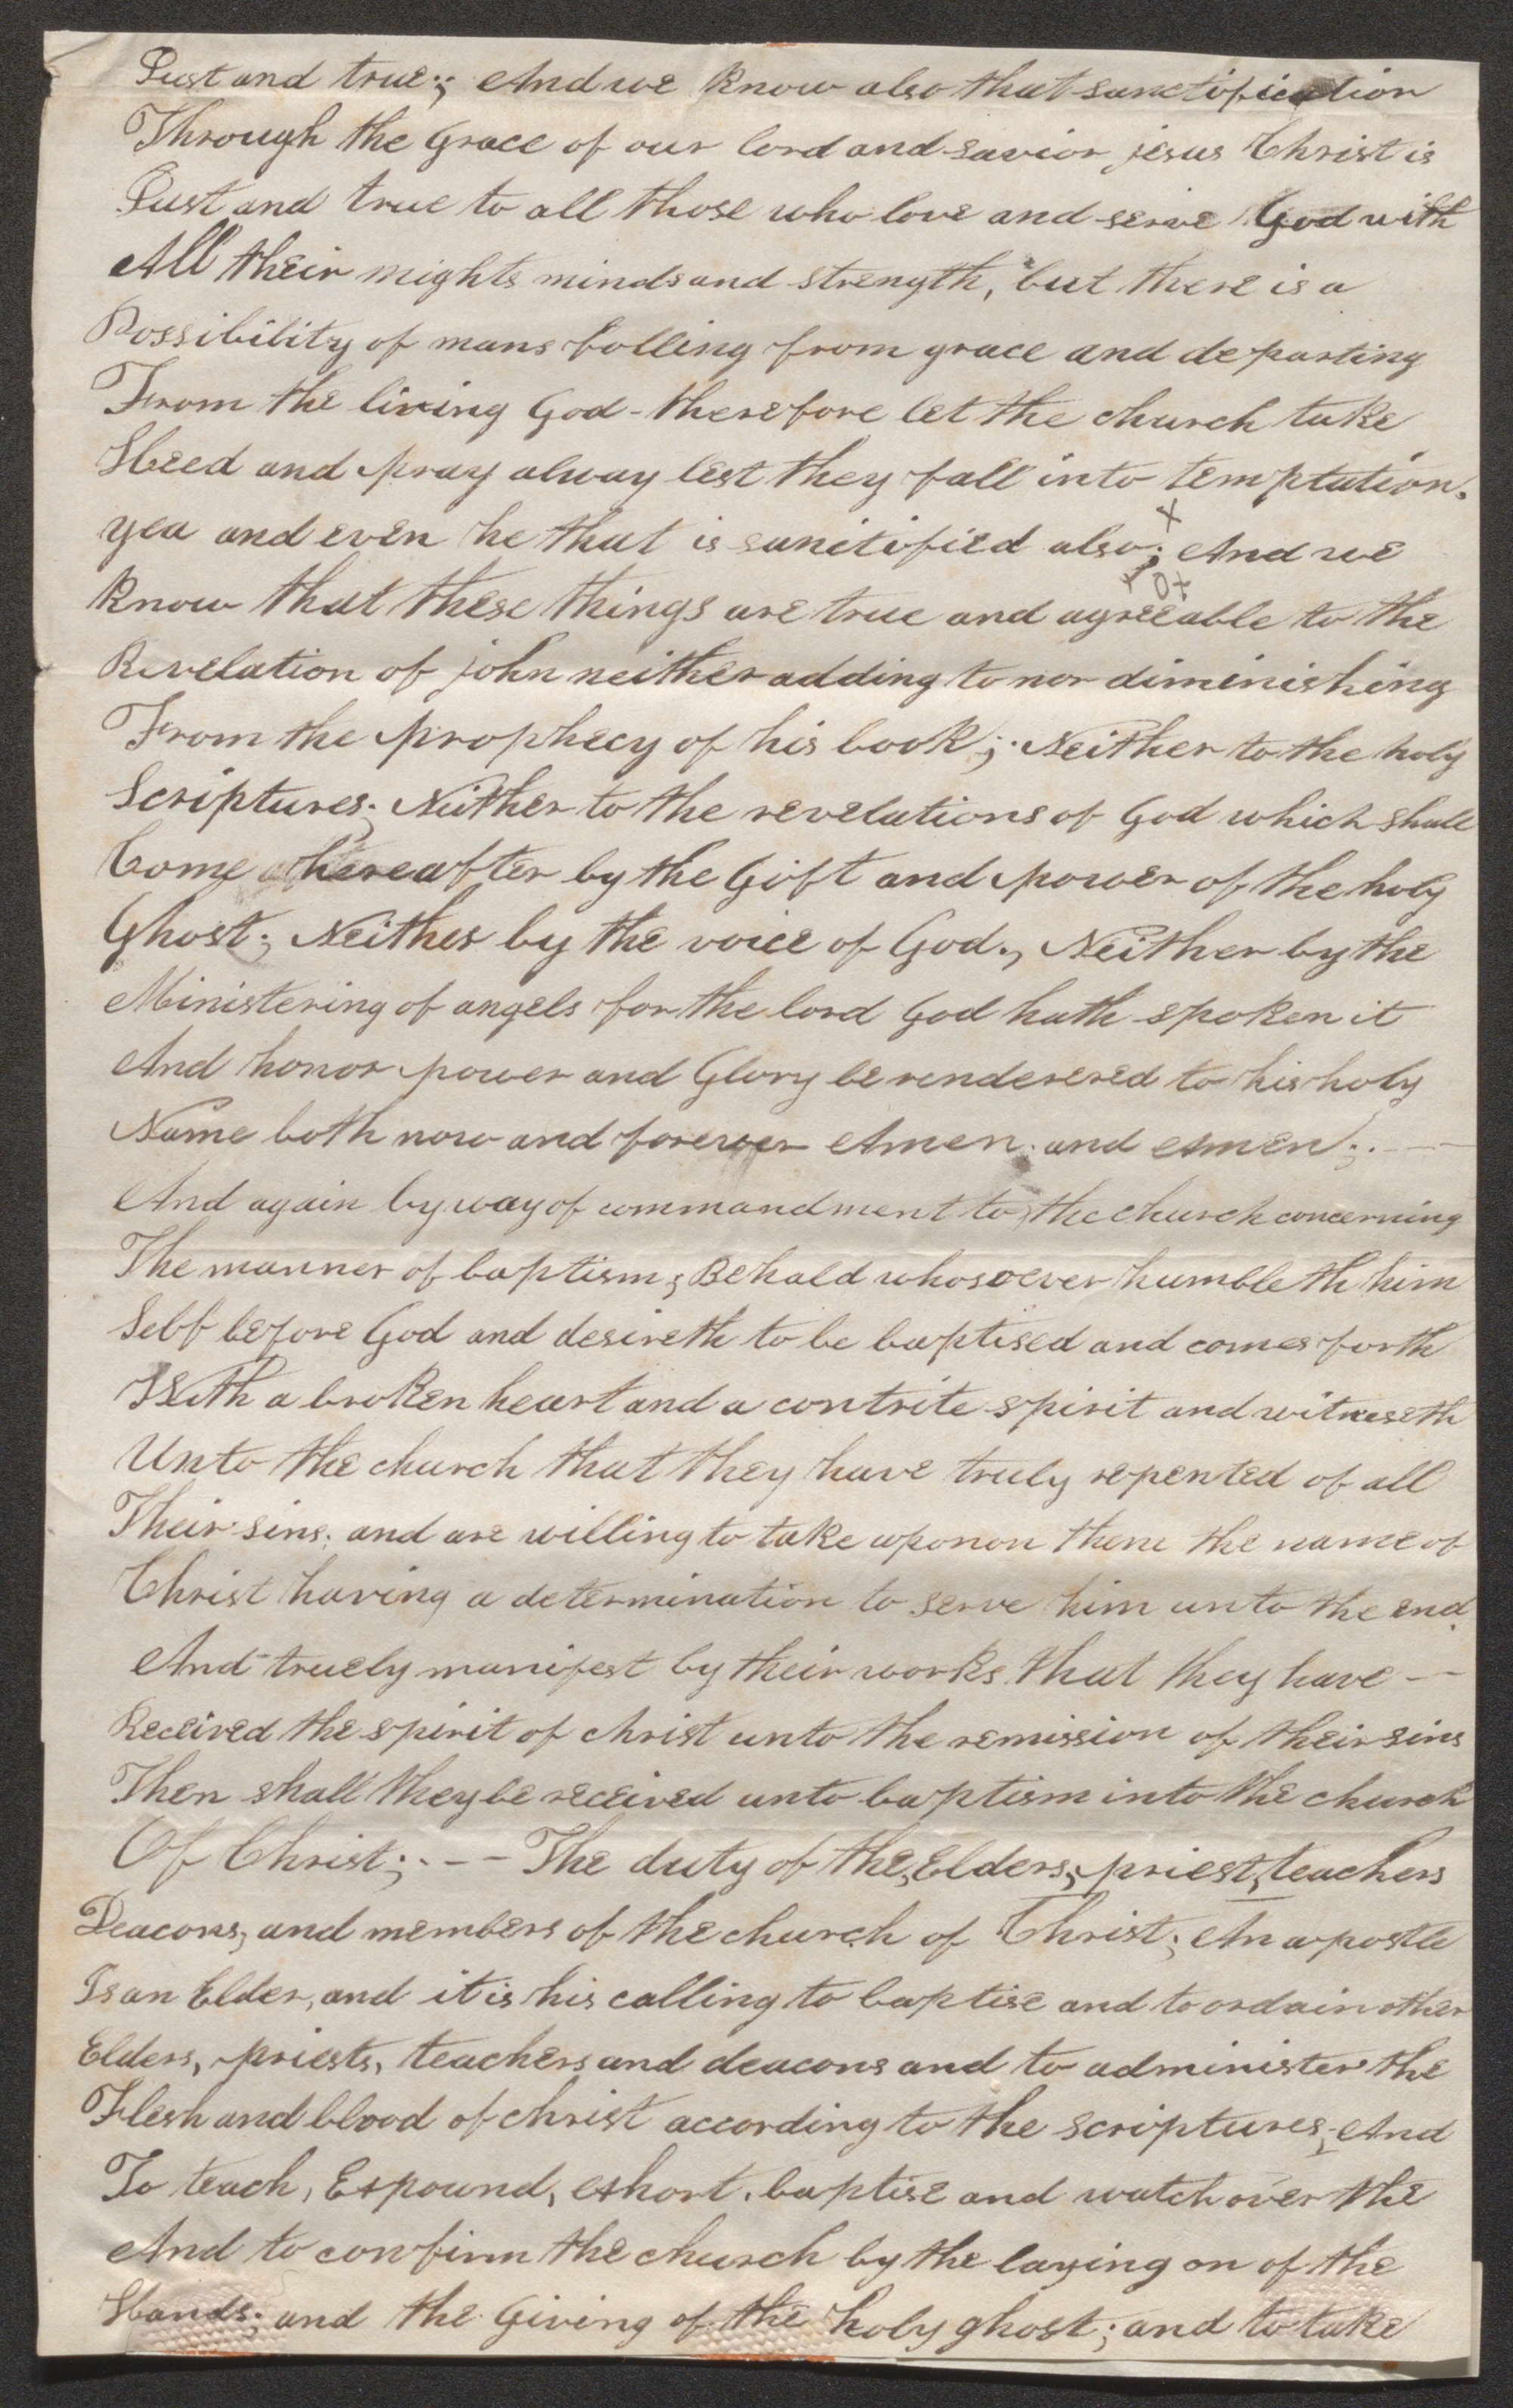 Just and true; And we know also that sanctification
Through the Grace of our lord and savior jesus Christ is
Just and true to all those who love and serve God with
All their mights minds and strength, but there is a
Possibility of mans falling from grace and departing
From the living God - therefore let the church take
Heed and pray alway lest they fall into temptation.
yea and even he that is sanctified also; And we
Know that these things are true and agreeable to the
Revelation of john neither adding to nor diminishing
From the prophecy of his book; Neither to the holy
Scriptures; Neither to the revelations of God which shall
Come hereafter by the Gift and power of the holy
Ghost; Neither by the voice of God., Neither by the
Ministering of angels for the lord God hath spoken it
And honor power and Glory be renderered to his holy
Name both now and forever Amen. and Amen;. —
And again by way of commandment to the church concerning
The manner of baptism; Behald whosoever humbleth him
Self before God and desireth to be baptised and comes forth
With a broken heart and a contrite spirit and witneseth
Unto the church that they have truly repented of all
Their sins; and are willing to take uponon them the name of
Christ having a determination to serve him unto the end.
And truely manifest by their works that they have —
Received the spirit of christ unto the remission of their sins
Then shall they be received unto baptism into the church
Of Christ;. - - The duty of the, Elders, priest, teachers
Deacons, and members of the church of Christ; An apostle
Is an Elder, and it is his calling to baptise and to ordain other
Elders, priests, teachers and deacons and to administer the
Flesh and blood of christ according to the scriptures; And
To teach, Expound, exhort, baptise and watch over the
And to confirm the church by the laying on of the
Hands; and the Giving of the holy ghost; and to take